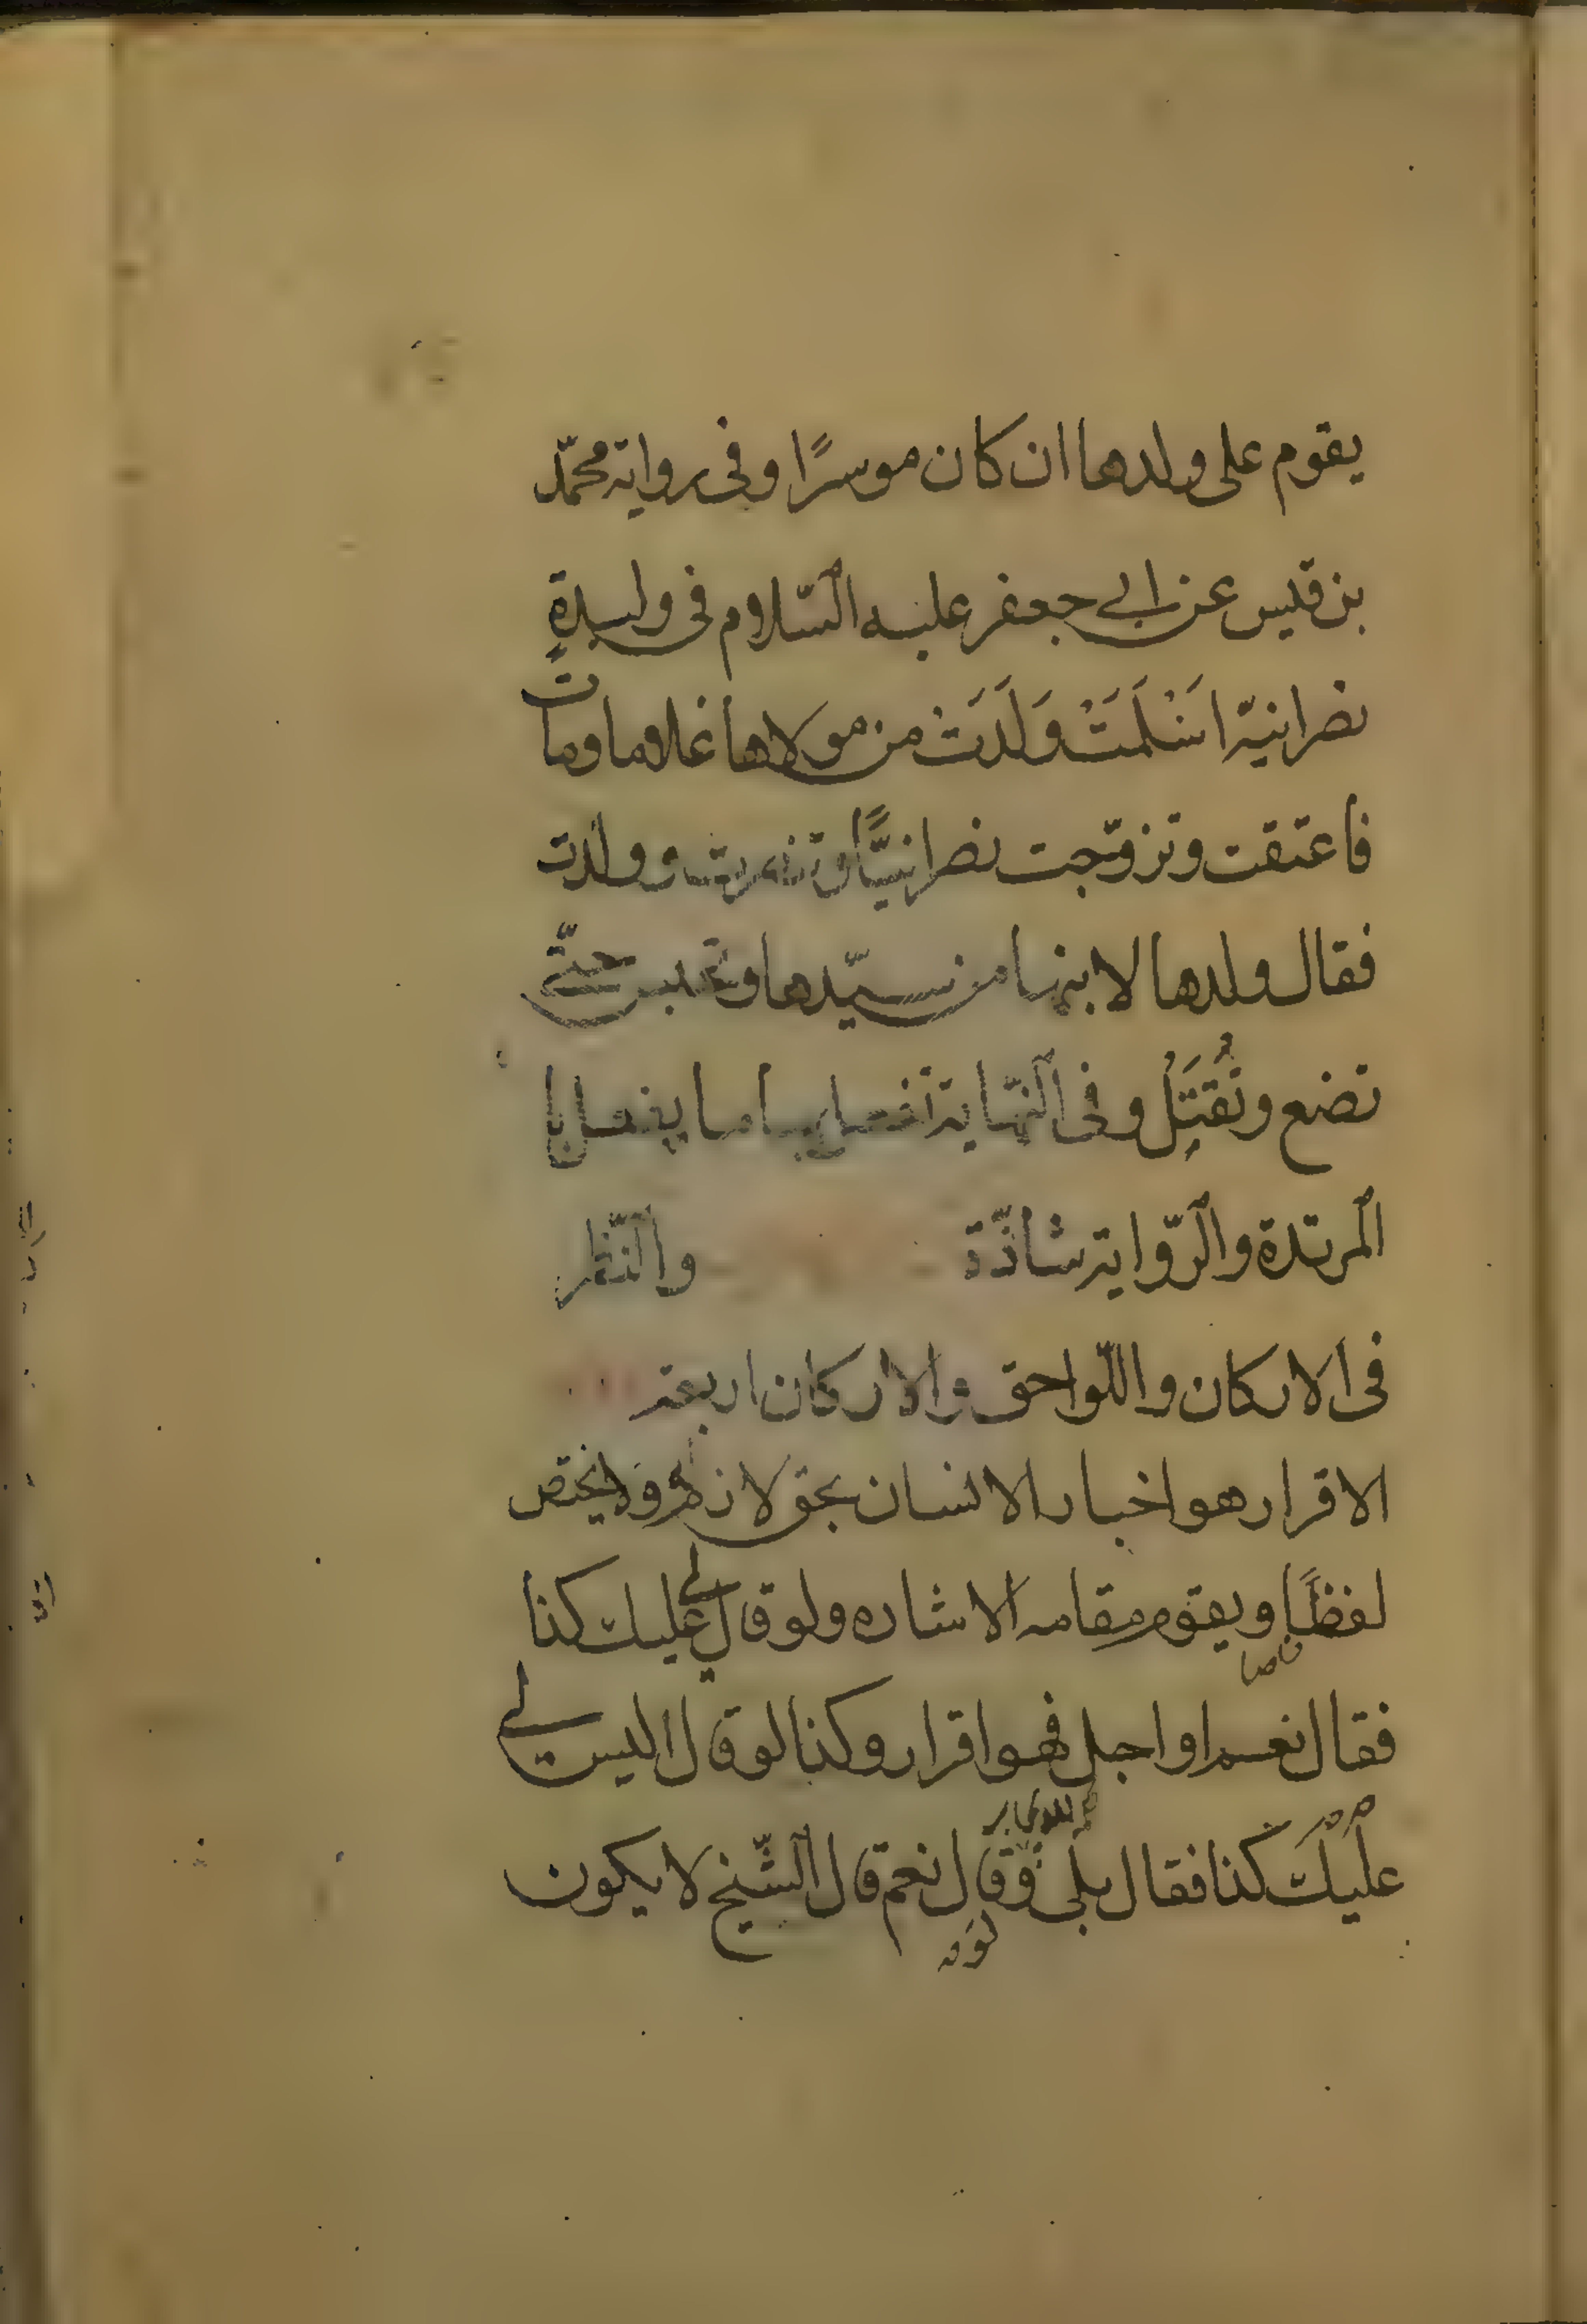 يقوم على ولدها ان كان موسرًا وفى رواية محمّد
بن قيس عن ابى جعفر عليه السّلام فى وليدةٍ
نصرانيّة اَسْلَمَتْ وَلَدَتْ من مولاها غلاما ومات
فاعتقت وتزوّجت نصرانيًّا وتنصرت وولدت
فقال ولدها لابنها من سيّدها وتحبس حتّى
تضع وتُقتَل وفى النّهاية تفعل بها ما يفعل با
المرتدة والرّواية شاذّة والنّظر
فى الاركان واللّواحق والاركان اربعة
الاقرار هو اخبار الانسان بحق لازم له ولا يختص
لفظًا ويقوم مقامه الاشاره ولو قال لى عليك كذا
فقال نعم او اجل فهو اقرار وكذا لو قال اليس لى
عليكَ كذا فقال بلى وقال نعم قال الشّيخ لا يكون
لو